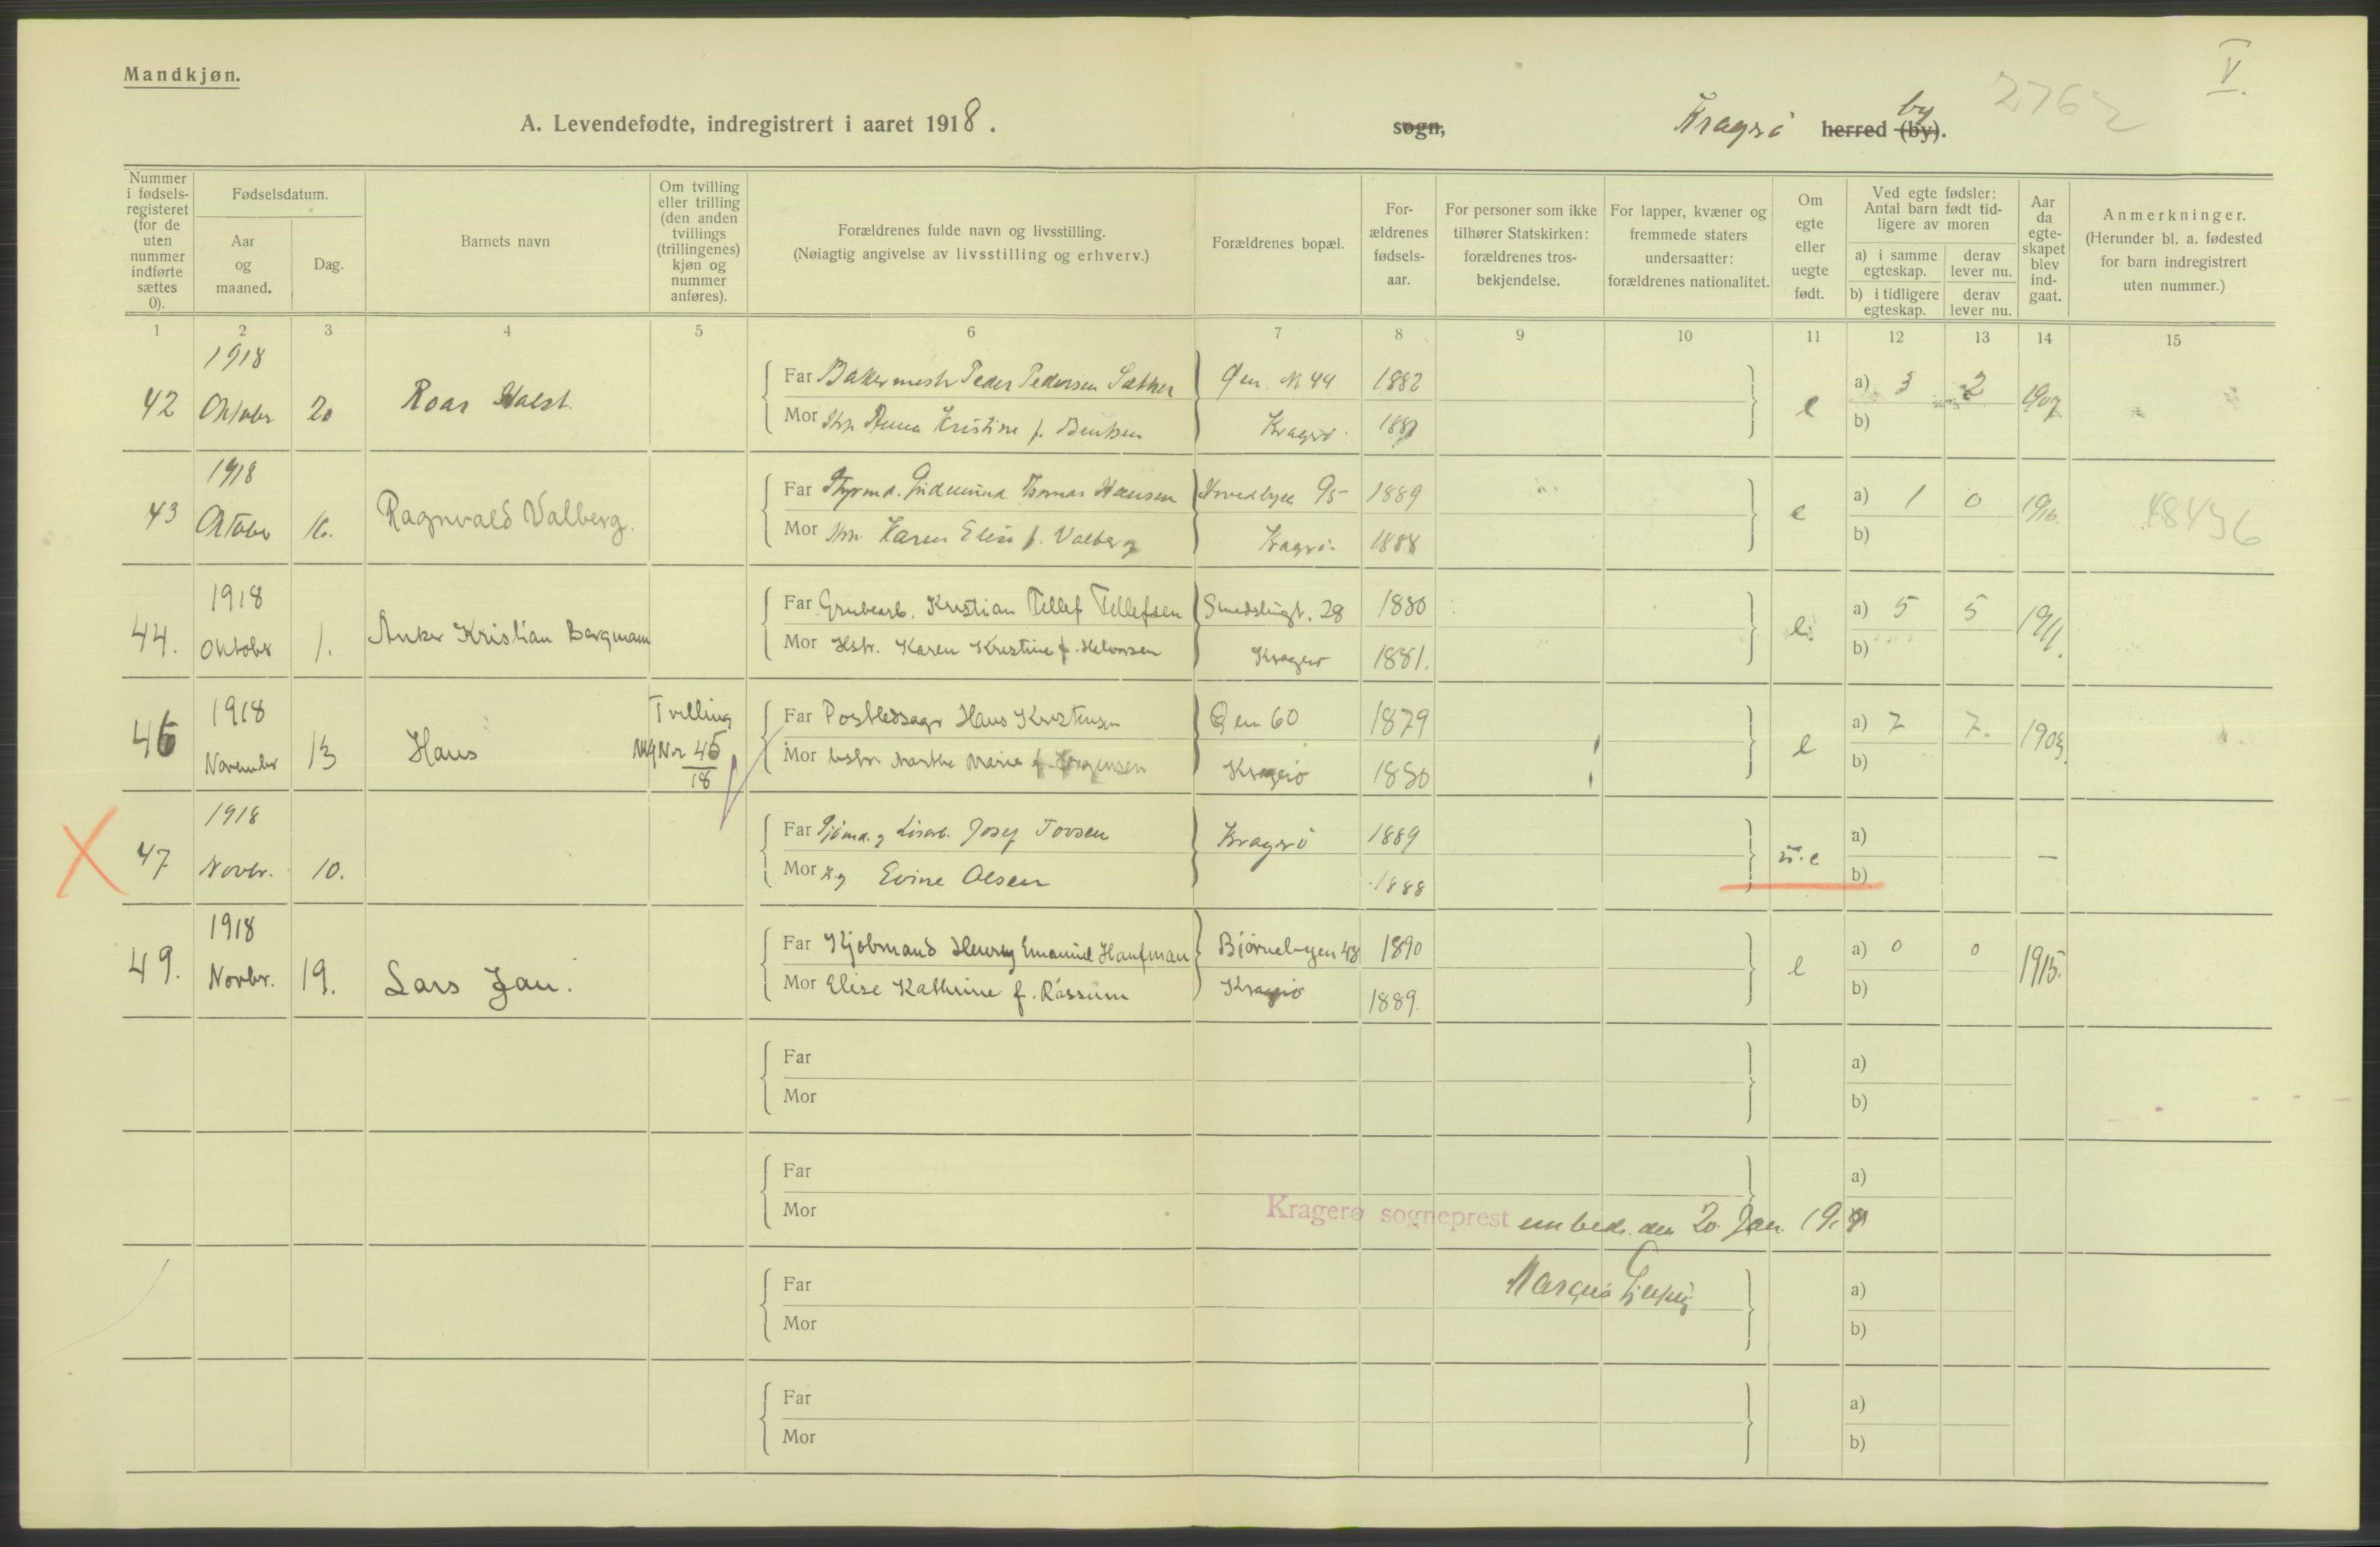 Mandkjøn.
V.
2762
A. Levendefødte, indregistrert i aaret 1918.
sogn, Kragerø herred (by). by
Nummer i fødsels-registeret (for de uten nummer indførte sættes 0).
Fødselsdatum.
Aar og maaned.
Dag.
Barnets navn
Om tvilling eller trilling (den anden tvillings (trillingenes) kjøn og nummer anføres).
Forældrenes fulde navn og livsstilling.
(Nøiagtig angivelse av livsstilling og erhverv.)
Forældrenes bopæl.
For-ældrenes fødsels-aar.
For personer som ikke tilhører Statskirken: forældrenes tros-bekjendelse.
For lapper, kvæner og fremmede staters undersaatter: forældrenes nationalitet.
Om egte eller uegte født.
Ved egte fødsler: Antal barn født tid-ligere av moren
a) i samme egteskap.
derav lever nu.
b) i tidligere egteskap.
derav lever nu.
Aar da egte-skapet blev ind-gaat.
Anmerkninger.
(Herunder bl. a. fødested for barn indregistrert uten nummer.)
1 2 3 4 5 6 7 8 9 10 11 12 13 14 15
42 1918 Oktober 20 Roar
Far Bakermestr Peder Pedersen Sæther Øen № 44 1882 e a) 3 2 1907
Mor Anna Kristine f. Bentsen Kragerø b)
43 1918 Oktober 16. Ragnvald Valberg.
Far Thomas Hansen 95 1889 e a) 1 0 1916
Mor Karen Elise f. Valberg Kragrø 1888 b)
48436
44. 1918 Oktober 1. Anker Kristian Bergmann
Far Grubearb. Kristian Tellef Tellefsen Smedsbugt. 28 1880 e. a) 5 5 1911.
Mor Hstr. Karen Kristine f. Halvorsen Kragerø 1881. b)
46 1918 November 13 Hans Tvilling Nr 45/18
Far Hans Kristensen Øen 60 1879 e a) 7 7. 1903.
Mor Marthe Marie f. Jørgensen Kragerø 1880 b)
47 1918 Novbr. 10.
Far Josef Tovsen Kragerø 1889 u.e a) —
Mor Evine Olsen 1888 b)
49. 1918 Novbr. 19. Lars Jan.
Far Kjøbmand Henry Emanuel Haufman 48 1890 e a) 0 0 1915.
Mor Elise Kathrine f. Rossum Kragerø 1889. b)
Far a)
Mor b)
Far a)
Mor
Kragerø sogneprest embede den 20 Jan 1919
Marcus
Far a)
Mor b)
Far a)
Mor b)